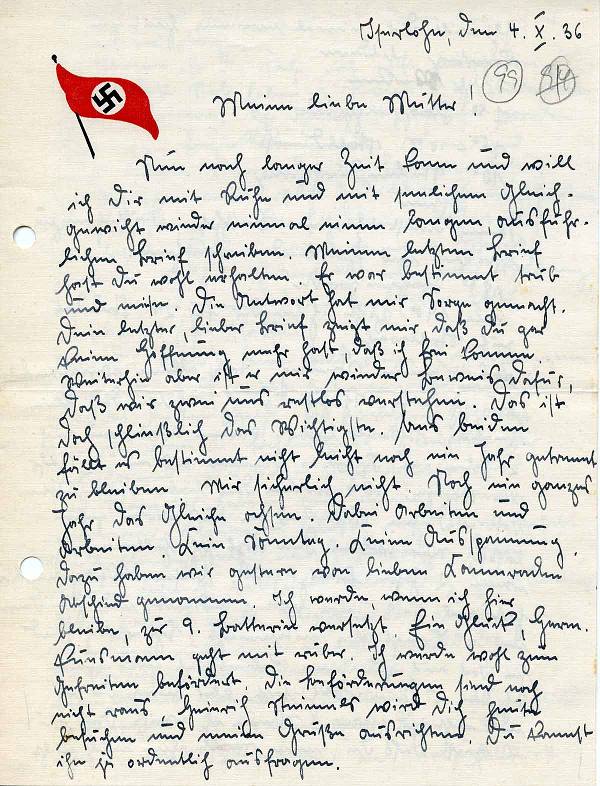 Iserlohn, den 4. X. 36
99
Meine liebe Mutter!
Nun nach langer Zeit kann und will
ich Dir mit Ruhe und mit seelischem Gleich-
gewicht wieder einmal einen langen, ausführ-
lichen Brief schreiben. Meinen letzten Brief
hast Du wohl erhalten. Er war bestimmt trüb
und miese. Die Antwort hat mir Sorge gemacht.
Dein letzter, lieber Brief zeigt mir, daß Du gar
keine Hoffnung mehr hast, daß ich frei komme.
Weiterhin aber ist er mir wieder Beweis dafür,
daß wir zwei uns restlos verstehen. Das ist
doch schließlich das Wichtigste. Uns beiden
fällt es bestimmt nicht leicht noch ein Jahr getrennt
zu bleiben. Mir sicherlich nicht. Noch ein ganzes
Jahr das Gleiche ochsen. Dabei Arbeiten und
Arbeiten. Kein Sonntag. Keine Ausspannung.
Dazu haben wir gestern von lieben Kameraden
Abschied genommen. Ich werde, wenn ich hier
bleibe, zur 9. Batterie versetzt. Ein Glück, Herm.
geht mit rüber. Ich werde wohl zum
Gefreiten befördert. Die Beförderungen sind noch
nicht raus. Heinrich wird Dich heute
besuchen und meine Grüße ausrichten. Du kannst
ihn ja ordentlich ausfragen.